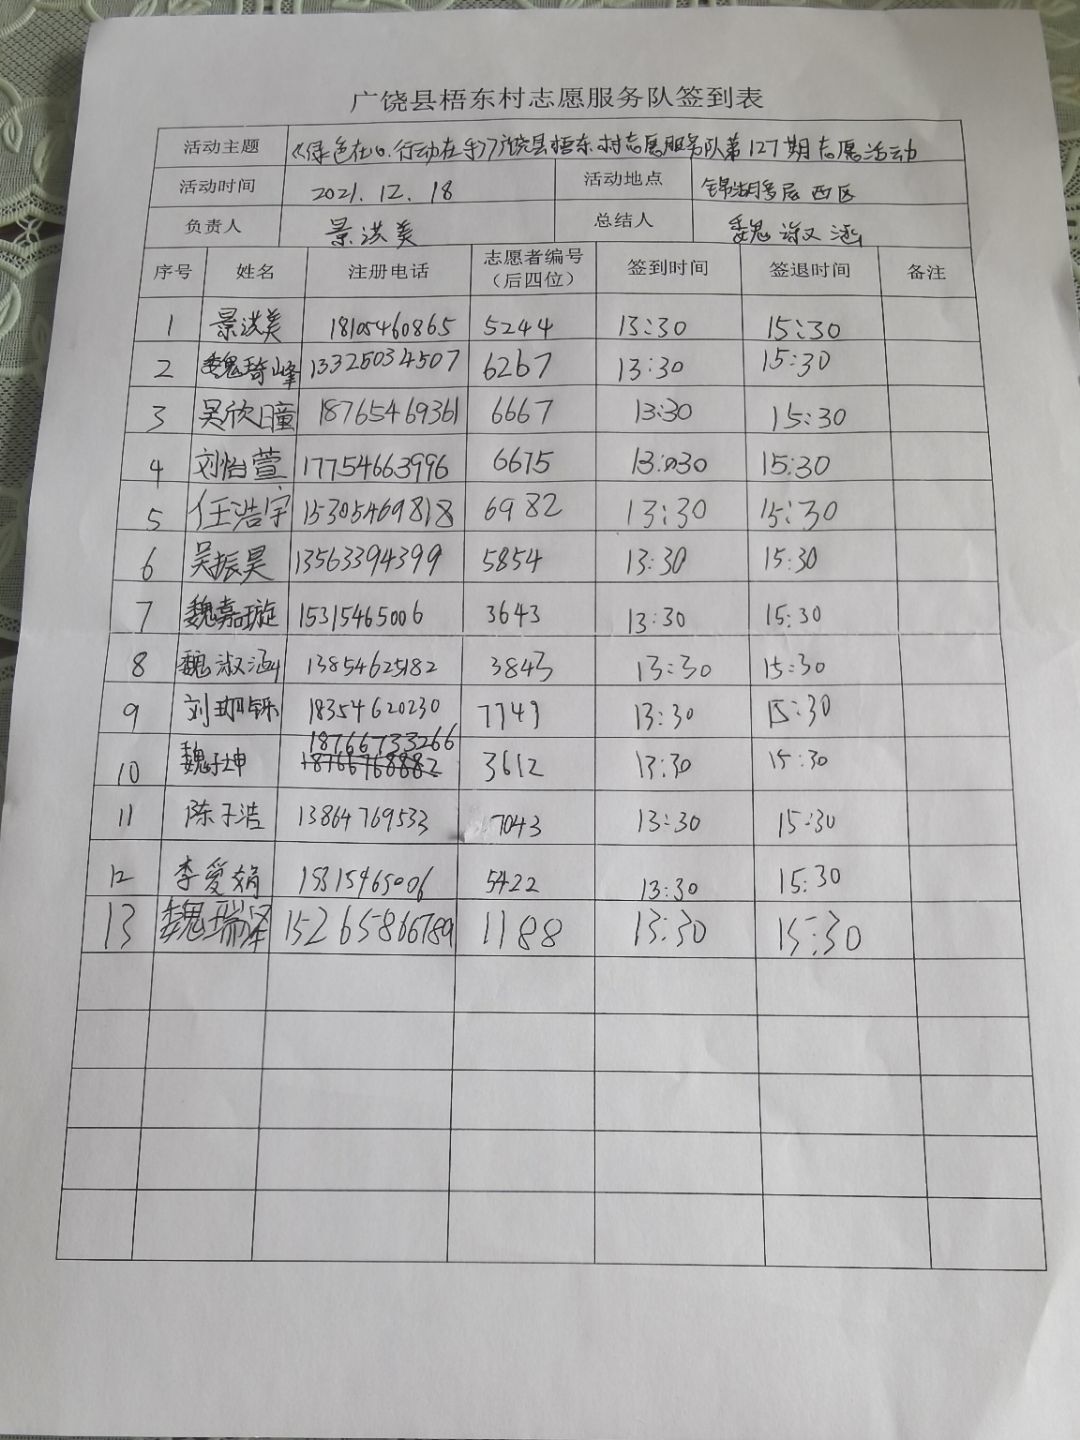 广饶县梧东村志愿服务队签到表
活动主题 《绿色在心.行动在手》广饶县梧东村志愿服务队第127期志愿活动
活动时间 2021.12.18 活动地点 锦湖多层西区
负责人 景洪美 总结人 魏淑涵
序号 姓名 注册电话 志愿者编号（后四位） 签到时间 签退时间 备注
1 景洪美 18105460865 5244 13:30 15:30
2 魏琦峰 13325034507 6267 13:30 15:30
3 吴欣瞳 18765469361 6667 13:30 15:30
4 刘怡萱 17754663996 6675 13:30 15:30
5 任浩宇 15305469818 6982 13:30 15:30
6 吴振昊 13563394399 5854 13:30 15:30
7 魏嘉璇 15315465006 3643 13:30 15:30
8 魏淑涵 13854625182 3843 13:30 15:30
9 刘珈铄 18354620230 7741 13:30 15:30
10 魏子坤 18766733266 3612 13:30 15:30
11 陈子浩 13864769533 7043 13:30 15:30
12 李爱娟 15315465006 5422 13:30 15:30
13 魏瑞泽 15265866789 1188 13:30 15:30